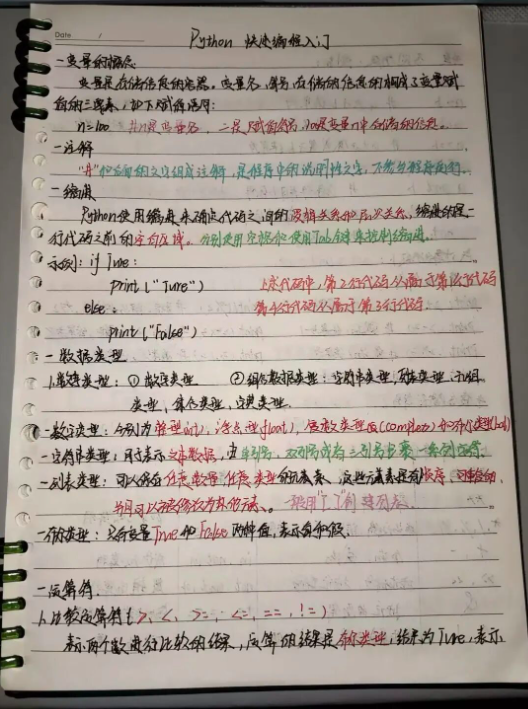 Date /
Python 快速编程入门
一变量的概念
变量是存储信息的容器。变量名,等号,存储的信息的构成了变量赋
值的三要素,如下赋值语句:
n=100 #n是变量名,=是赋值符,100是变量n中存储的信息。
一注解
"#"和后面的文字组成注解,是程序中的说明性文字,不作为程序运行。
一缩进
Python使用缩进来确定代码之间的逻辑关系和层次关系,缩进是
行代码之前的空白区域。分别使用空格和使用Tab键来控制缩进。
示例:if Ture:
print("Ture") 上述代码中,第2行代码从属于第1行代码
else: 第4行代码从属于第3行代码。
print("False")
一数据类型
1.常见类型:①数字类型 ②组合数据类型:字符串类型,列表类型,元组
类型,集合类型,字典类型.
一数字类型:分别为整型(int),浮点型(float),复数类型(complex)和布尔类型(bool)
一字符串类型:用于表示文本数据,由单引号,双引号或者三引号包裹一系列字符.
一列表类型:可以保存任意数量,任意类型的元素,这些元素是有顺序,可重复的,
并且可以被修改为其他元素。一般用"[ ]"创建列表.
一布尔类型:只有变量True和False两种值,表示真和假.
一运算符.
1.比较运算符(>, <, >=, <=, ==, !=)
表示两个数进行比较的结果,运算的结果是布尔类型,结果为Ture,表示